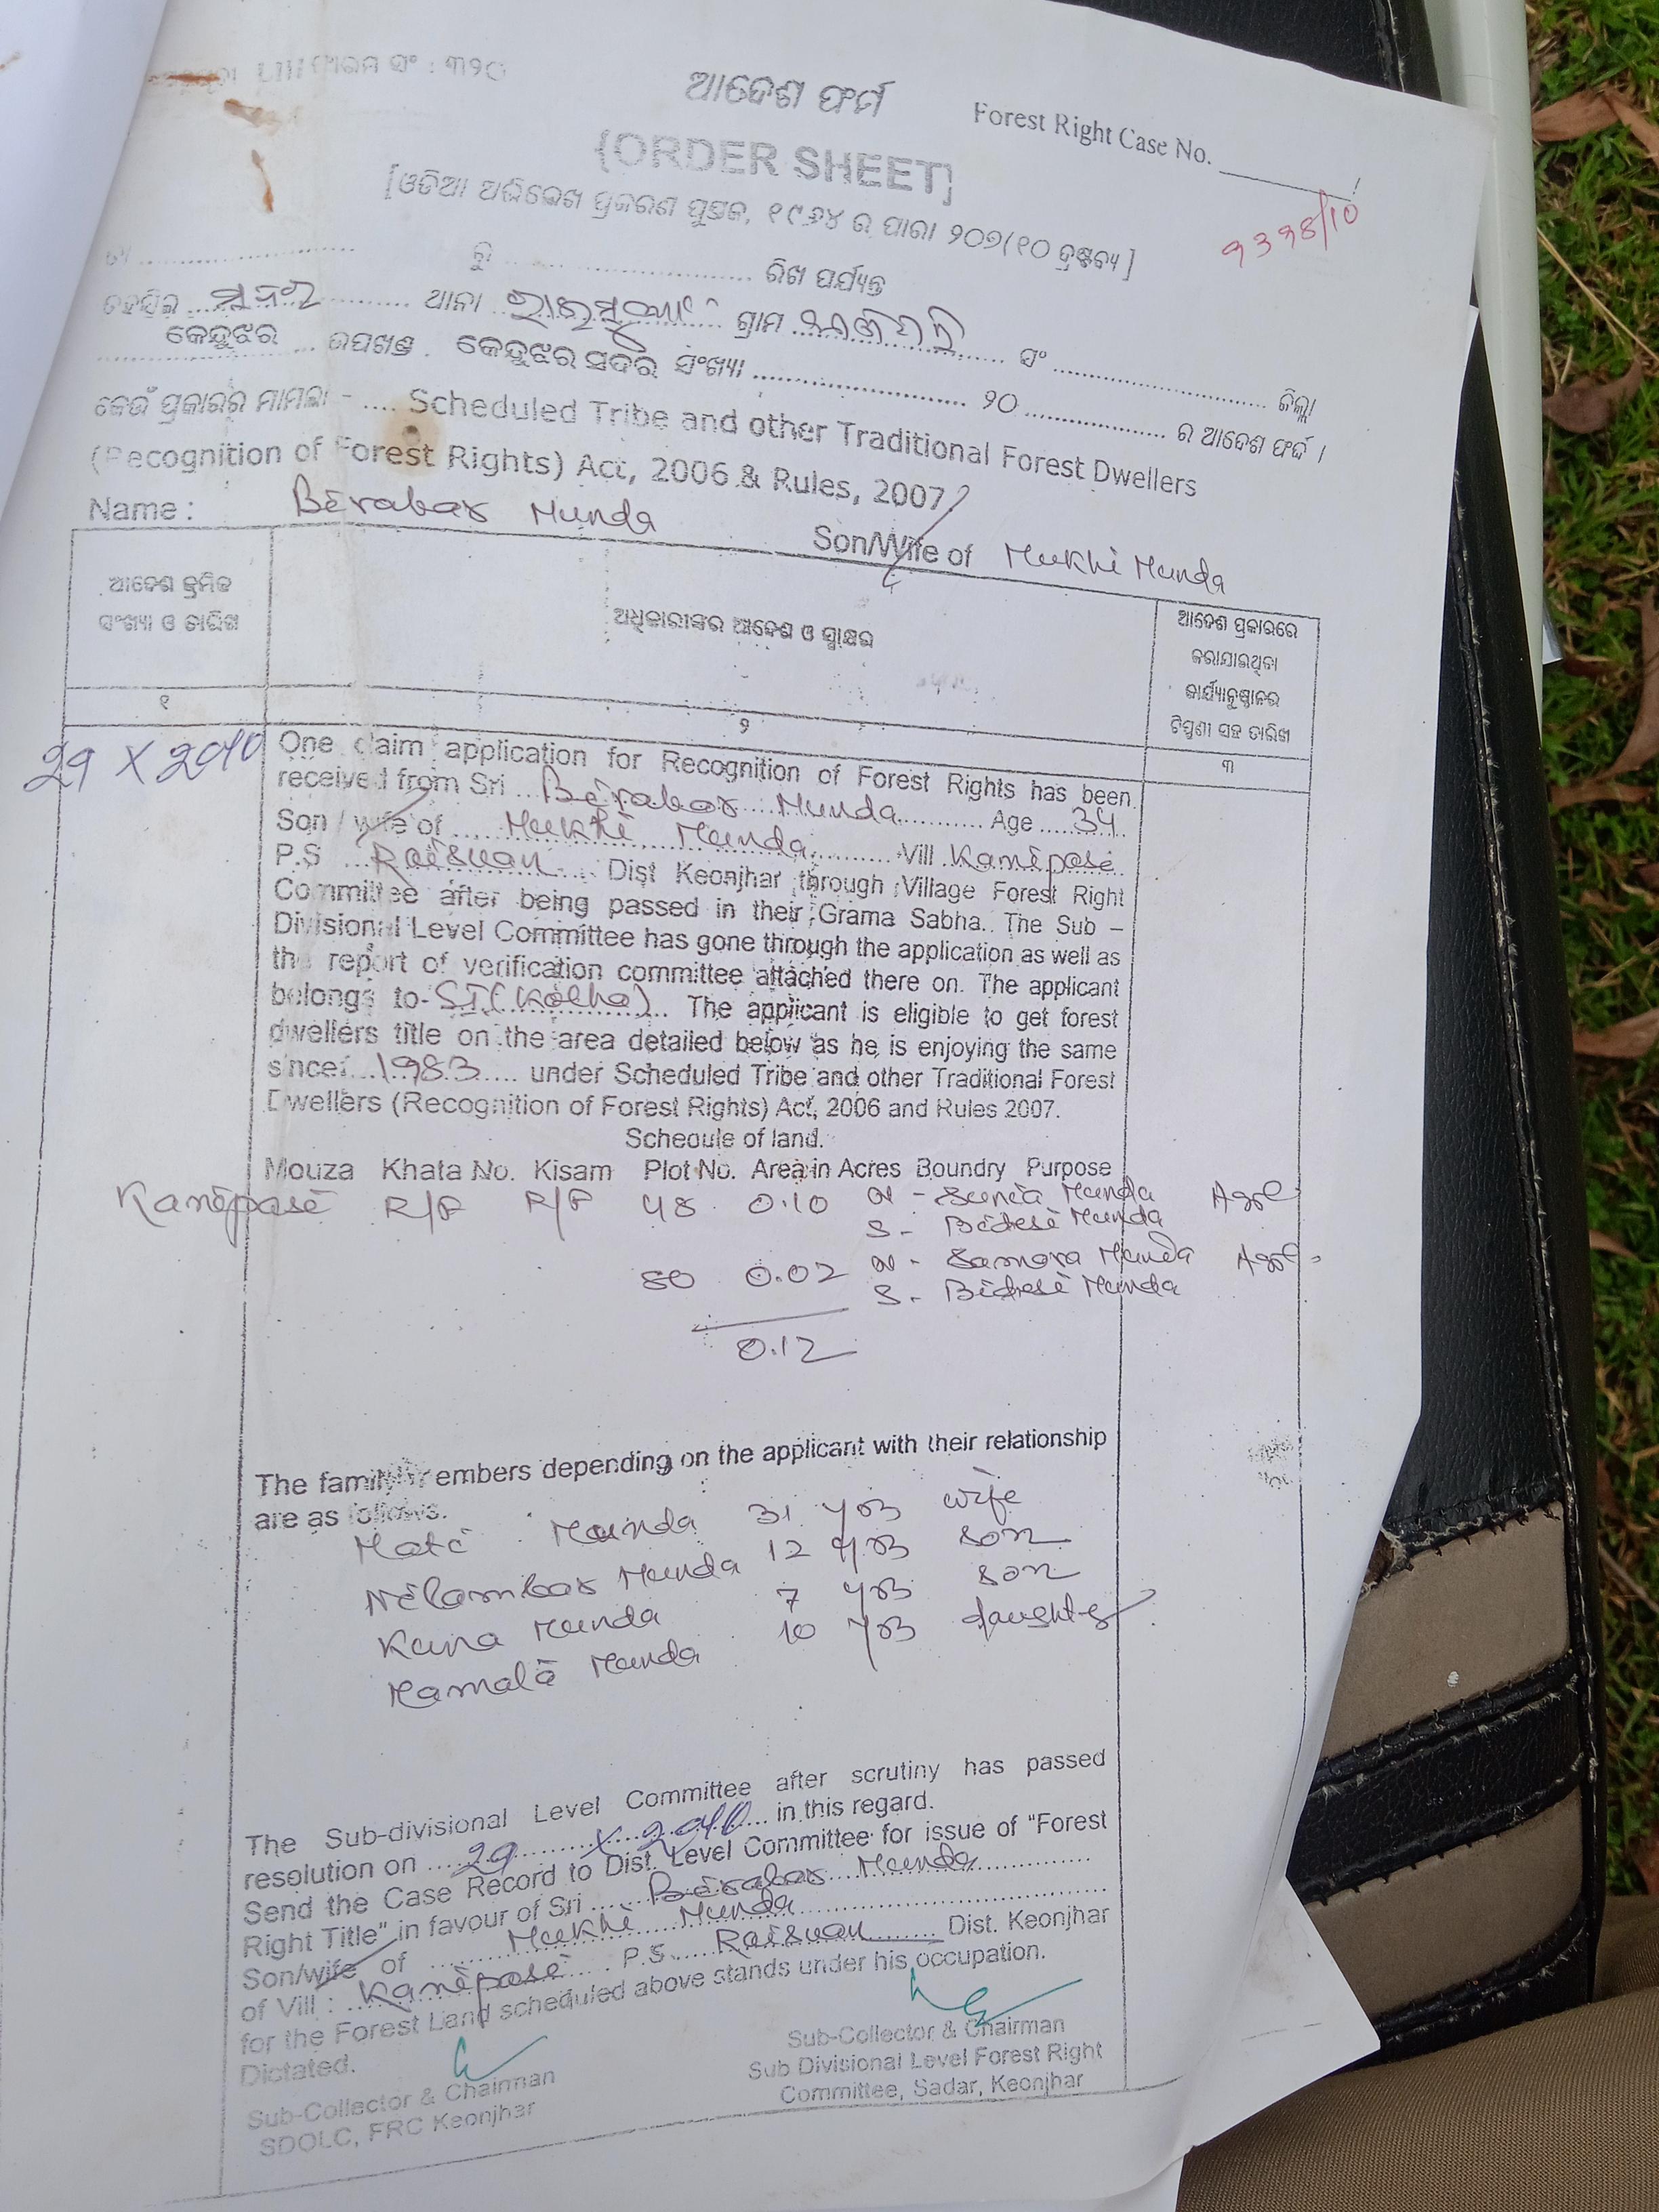 ଫାରମ ସଂ : ୩୨୦
ଆଦେଶ ଫର୍ମ
Forest Right Case No.
{ORDER SHEET]
[ଓଡିଆ ଅଭିଲେଖ ପ୍ରକରଣ ପୁସ୍ତକ, ୧୯୬୪ ର ପାରା ୨୦୭(୧୦ ଦ୍ରଷ୍ଟବ୍ୟ ]
ତା .................... ରୁ .................... ରିଖ ପର୍ଯ୍ୟନ୍ତ
ତହସିଲ ............ ଥାନା ............ ଗ୍ରାମ ............ ସଂ ............ ଜିଲ୍ଲା
କେନ୍ଦୁଝର .... ଉପଖଣ୍ଡ . କେନ୍ଦୁଝର ସଦର ସଂଖ୍ୟା ............ ୨୦ ............ ର ଆଦେଶ ଫର୍ଦ୍ଦ ।
କେଉଁ ପ୍ରକାରର ମାମଲା - .... Scheduled Tribe and other Traditional Forest Dwellers
(Recognition of Forest Rights) Act, 2006 & Rules, 2007
Name : Birabar Munda Son/Wife of Mukhi Munda
ଆଦେଶ କ୍ରମିକ
ସଂଖ୍ୟା ଓ ତାରିଖ
ଅଧିକାରୀଙ୍କର ଆଦେଶ ଓ ସ୍ବାକ୍ଷର
ଆଦେଶ ପ୍ରକାରରେ
କରାଯାଇଥିବା
କାର୍ଯ୍ୟାନୁଷ୍ଠାନର
ଟିପ୍ପଣୀ ସହ ତାରିଖ
୧ ୨ ୩
29 X 2010
One claim application for Recognition of Forest Rights has been
received from Sri ... Birabar Munda ............ Age ..... 34
Son / wife of ..... Mukhi Munda ......... Vill Kanipasi
P.S ... Raisuan ..... Dist Keonjhar through Village Forest Right
Committee after being passed in their Grama Sabha. The Sub –
Divisional Level Committee has gone through the application as well as
the report of verification committee attached there on. The applicant
belongs to- ST (Kolha) ... The applicant is eligible to get forest
dwellers title on the area detailed below as he is enjoying the same
since ... 1983 ..... under Scheduled Tribe and other Traditional Forest
Dwellers (Recognition of Forest Rights) Act, 2006 and Rules 2007.
Schedule of land.
Mouza Khata No. Kisam Plot No. Area in Acres Boundry Purpose
Kanipasi R/F R/F 48 0.10 N - Suna Munda Agrl
S - Bidesi Munda
80 0.02 N - Samara Munda Agrl
S - Bidesi Munda
0.12
The family members depending on the applicant with their relationship
are as follows.
Mati Munda 31 yrs wife
Nilambar Munda 12 yrs son
Kuna Munda 7 yrs son
Kamala Munda 10 yrs daughter
The Sub-divisional Level Committee after scrutiny has passed
resolution on ... 29 X 2010 ... in this regard.
Send the Case Record to Dist. Level Committee for issue of “Forest
Right Title” in favour of Sri ..... Birabar Munda ............
Son/wife of ..... Mukhi Munda ............
of Vill : ... Kanipasi ..... P.S. ... Raisuan ........ Dist. Keonjhar
for the Forest Land scheduled above stands under his occupation.
Dictated.
Sub-Collector & Chairman
SDOLC, FRC Keonjhar
Sub-Collector & Chairman
Sub Divisional Level Forest Right
Committee, Sadar, Keonjhar